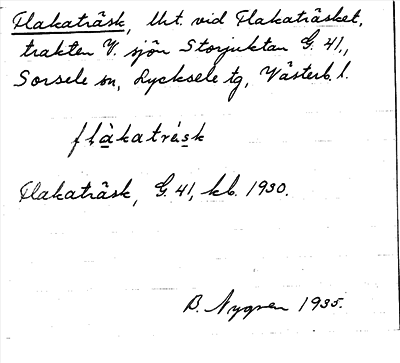 Flakaträsk, lht. vid Flakaträsket,
trakten V. sjön Storjuktan G. 41.,
Sorsele sn, Lycksele tg, Västerb. l.
flàkaträ́sk
Flakaträsk, G. 41, kb. 1930.
B. Nygren 1935.